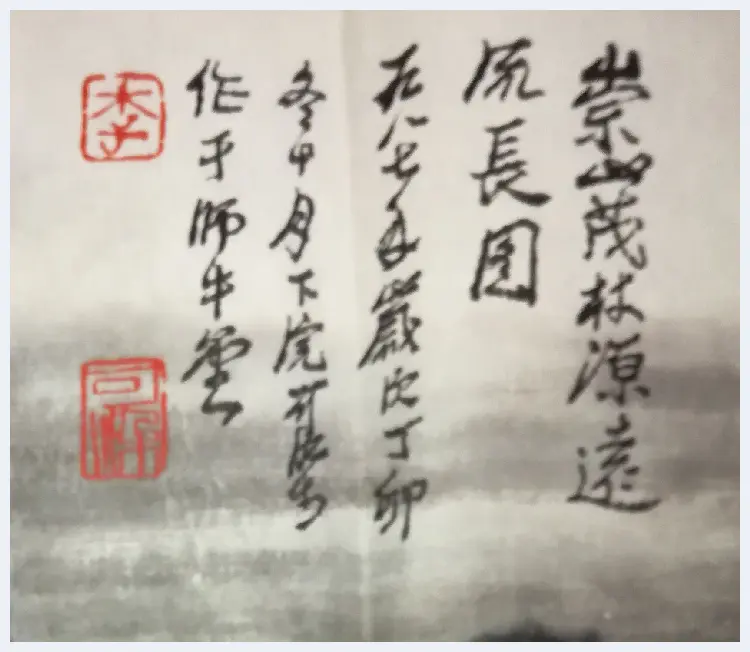 崇山茂林源遠
流長图
一九八七年歲次丁卯
冬中月下浣可染
作于師牛堂
李
可染